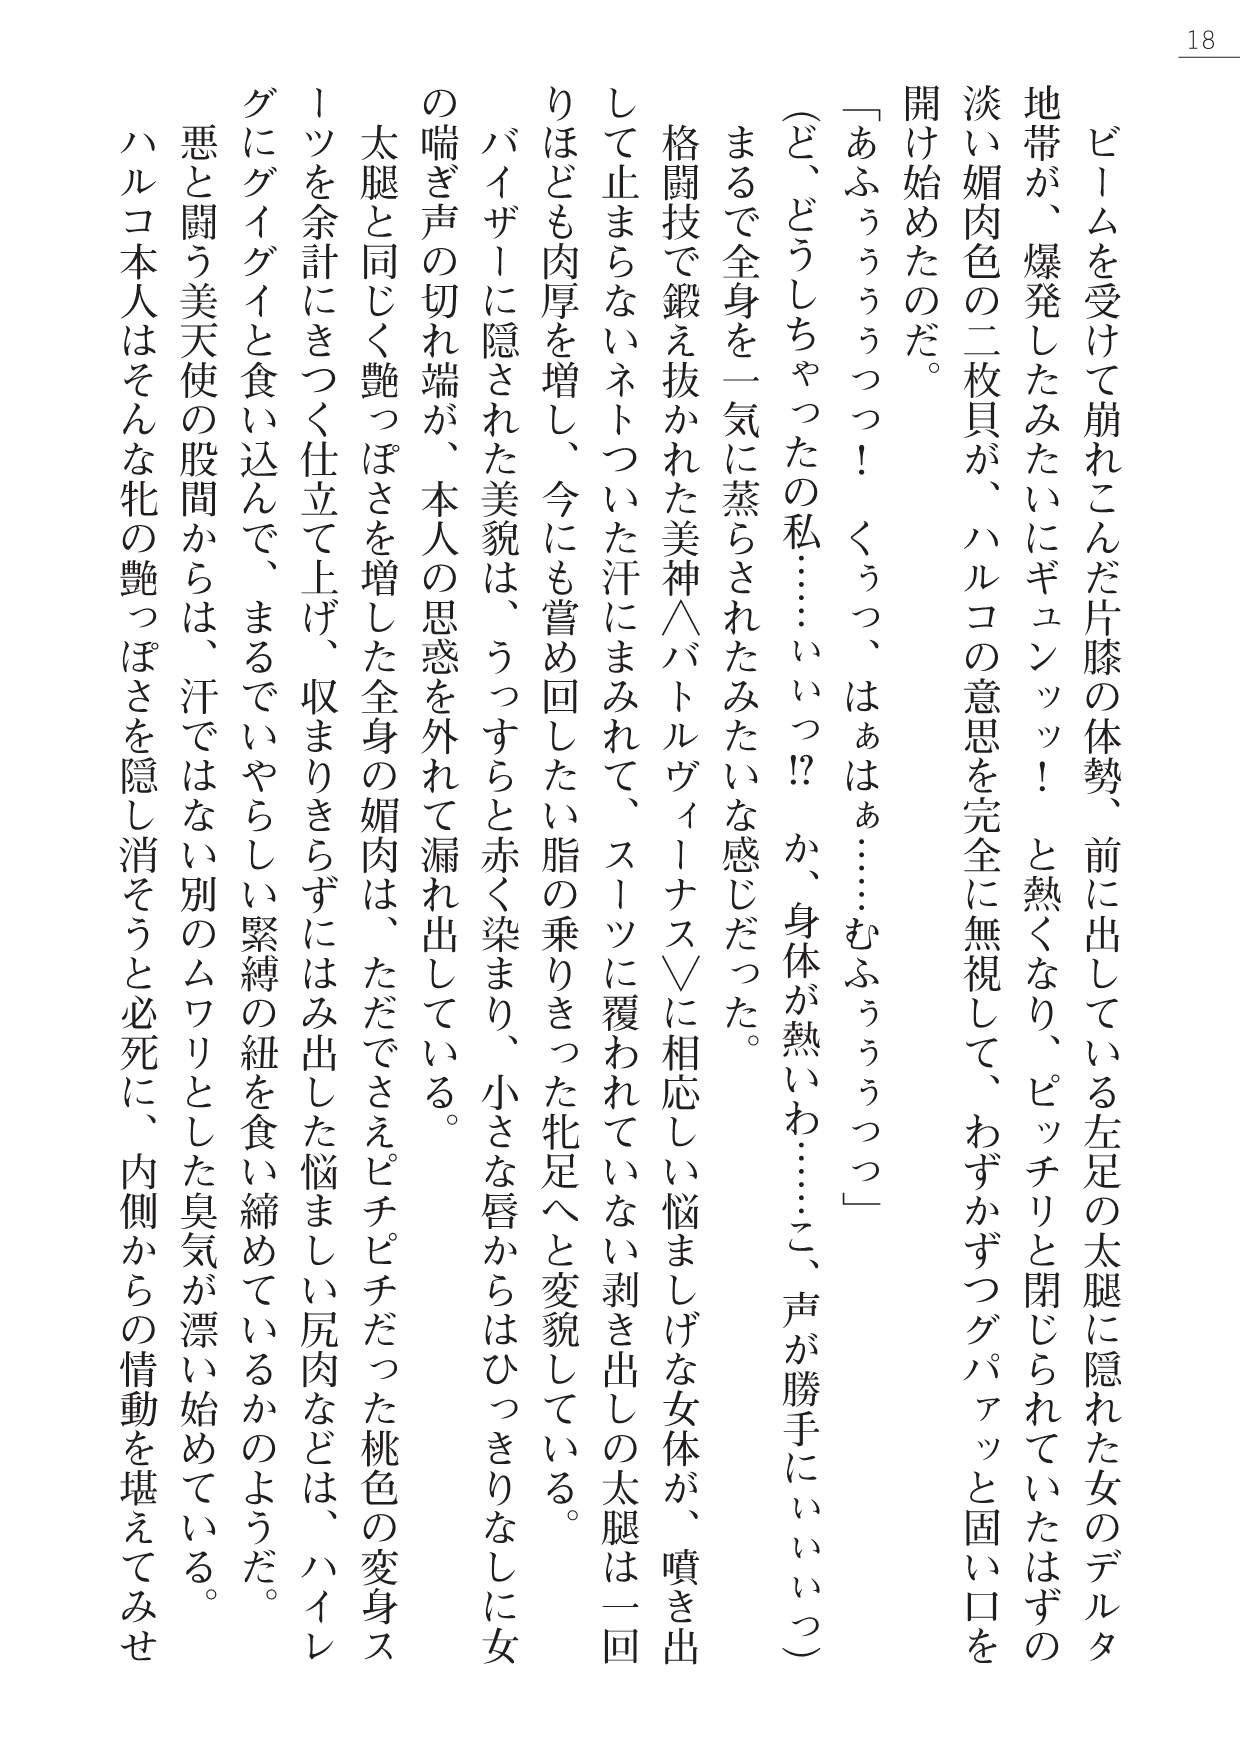 18
ビームを受けて崩れこんだ片膝の体勢、前に出している左足の太腿に隠れた女のデルタ
地帯が、爆発したみたいにギュンッッ！　と熱くなり、ピッチリと閉じられていたはずの
淡い媚肉色の二枚貝が、ハルコの意思を完全に無視して、わずかずつグパァッと固い口を
開け始めたのだ。
「あふぅぅぅぅっっ！　くぅっ、はぁはぁ……むふぅぅぅっっ」
（ど、どうしちゃったの私……いぃっ!?　か、身体が熱いわ……こ、声が勝手にぃぃぃっ）
まるで全身を一気に蒸らされたみたいな感じだった。
格闘技で鍛え抜かれた美神＜バトルヴィーナス＞に相応しい悩ましげな女体が、噴き出
して止まらないネトついた汗にまみれて、スーツに覆われていない剥き出しの太腿は一回
りほども肉厚を増し、今にも嘗め回したい脂の乗りきった牝足へと変貌している。
バイザーに隠された美貌は、うっすらと赤く染まり、小さな唇からはひっきりなしに女
の喘ぎ声の切れ端が、本人の思惑を外れて漏れ出している。
太腿と同じく艶っぽさを増した全身の媚肉は、ただでさえピチピチだった桃色の変身ス
ーツを余計にきつく仕立て上げ、収まりきらずにはみ出した悩ましい尻肉などは、ハイレ
グにグイグイと食い込んで、まるでいやらしい緊縛の紐を食い締めているかのようだ。
悪と闘う美天使の股間からは、汗ではない別のムワリとした臭気が漂い始めている。
ハルコ本人はそんな牝の艶っぽさを隠し消そうと必死に、内側からの情動を堪えてみせ